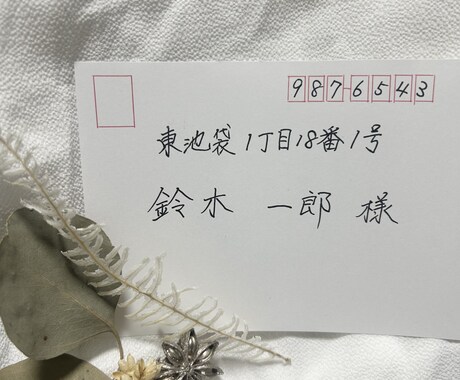 987-6543
東池袋1丁目18番1号
鈴木 一郎 様